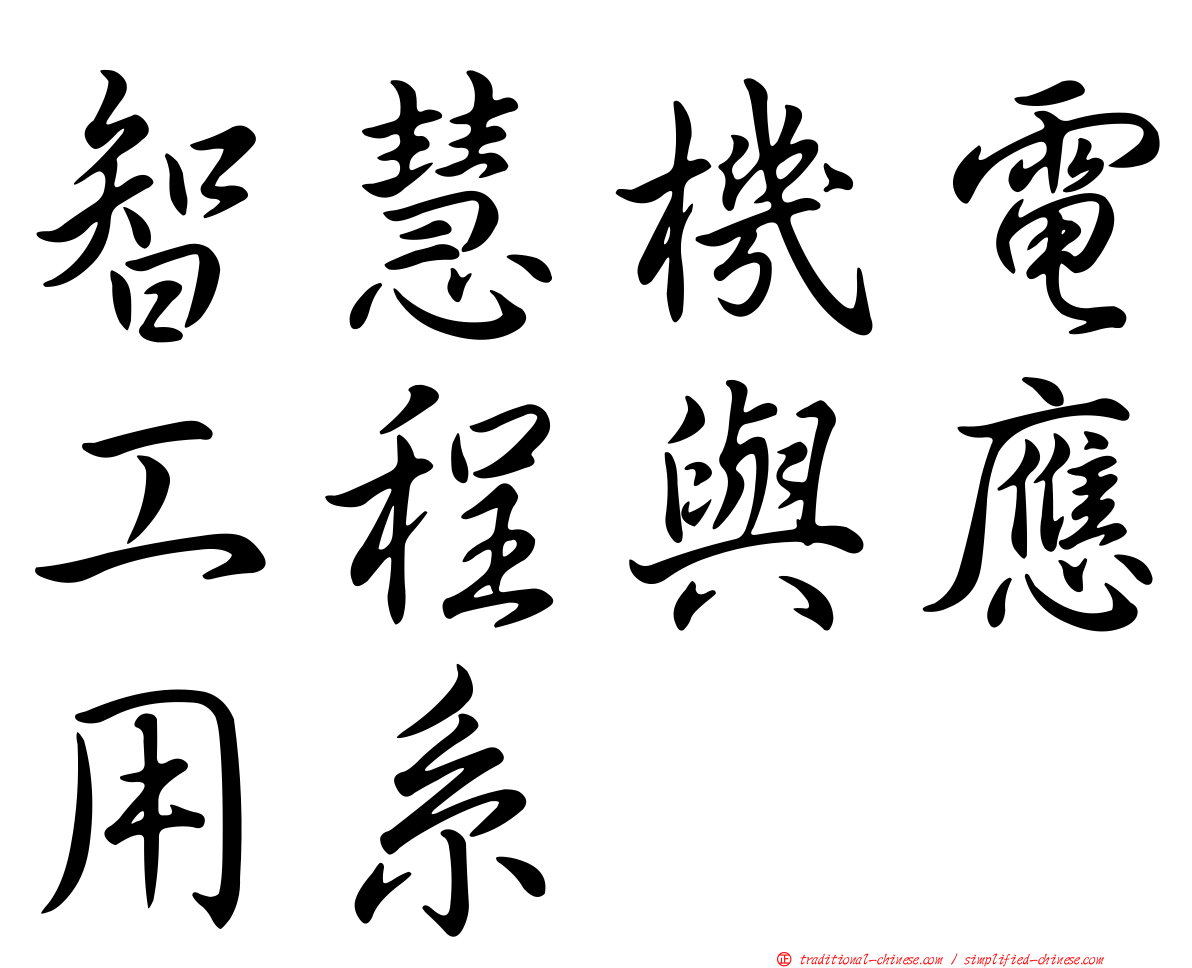 智慧機電
工程與應
用系
正 traditional-chinese.com / simplified-chinese.com